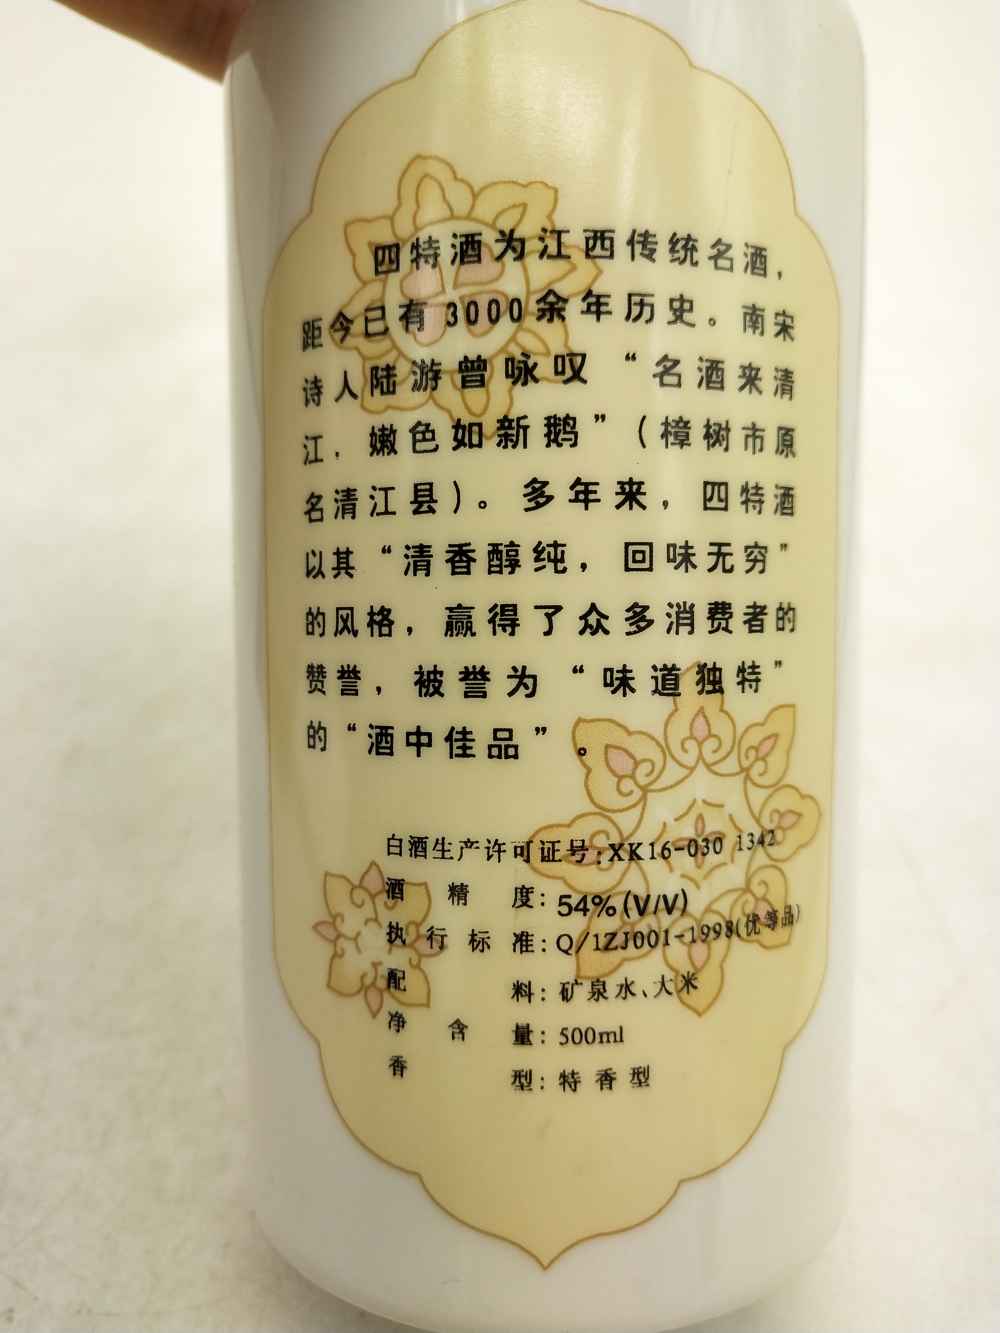 四特酒为江西传统名酒，
距今已有3000余年历史。南宋
诗人陆游曾咏叹“名酒来清
江，嫩色如新鹅”（樟树市原
名清江县）。多年来，四特酒
以其“清香醇纯，回味无穷”
的风格，赢得了众多消费者的
赞誉，被誉为“味道独特”
的“酒中佳品”。
白酒生产许可证号：XK16-030 1342
酒精度：54%(V/V)
执行标准：Q/1ZJ001-1998(优等品)
配料：矿泉水、大米
净含量：500ml
香型：特香型